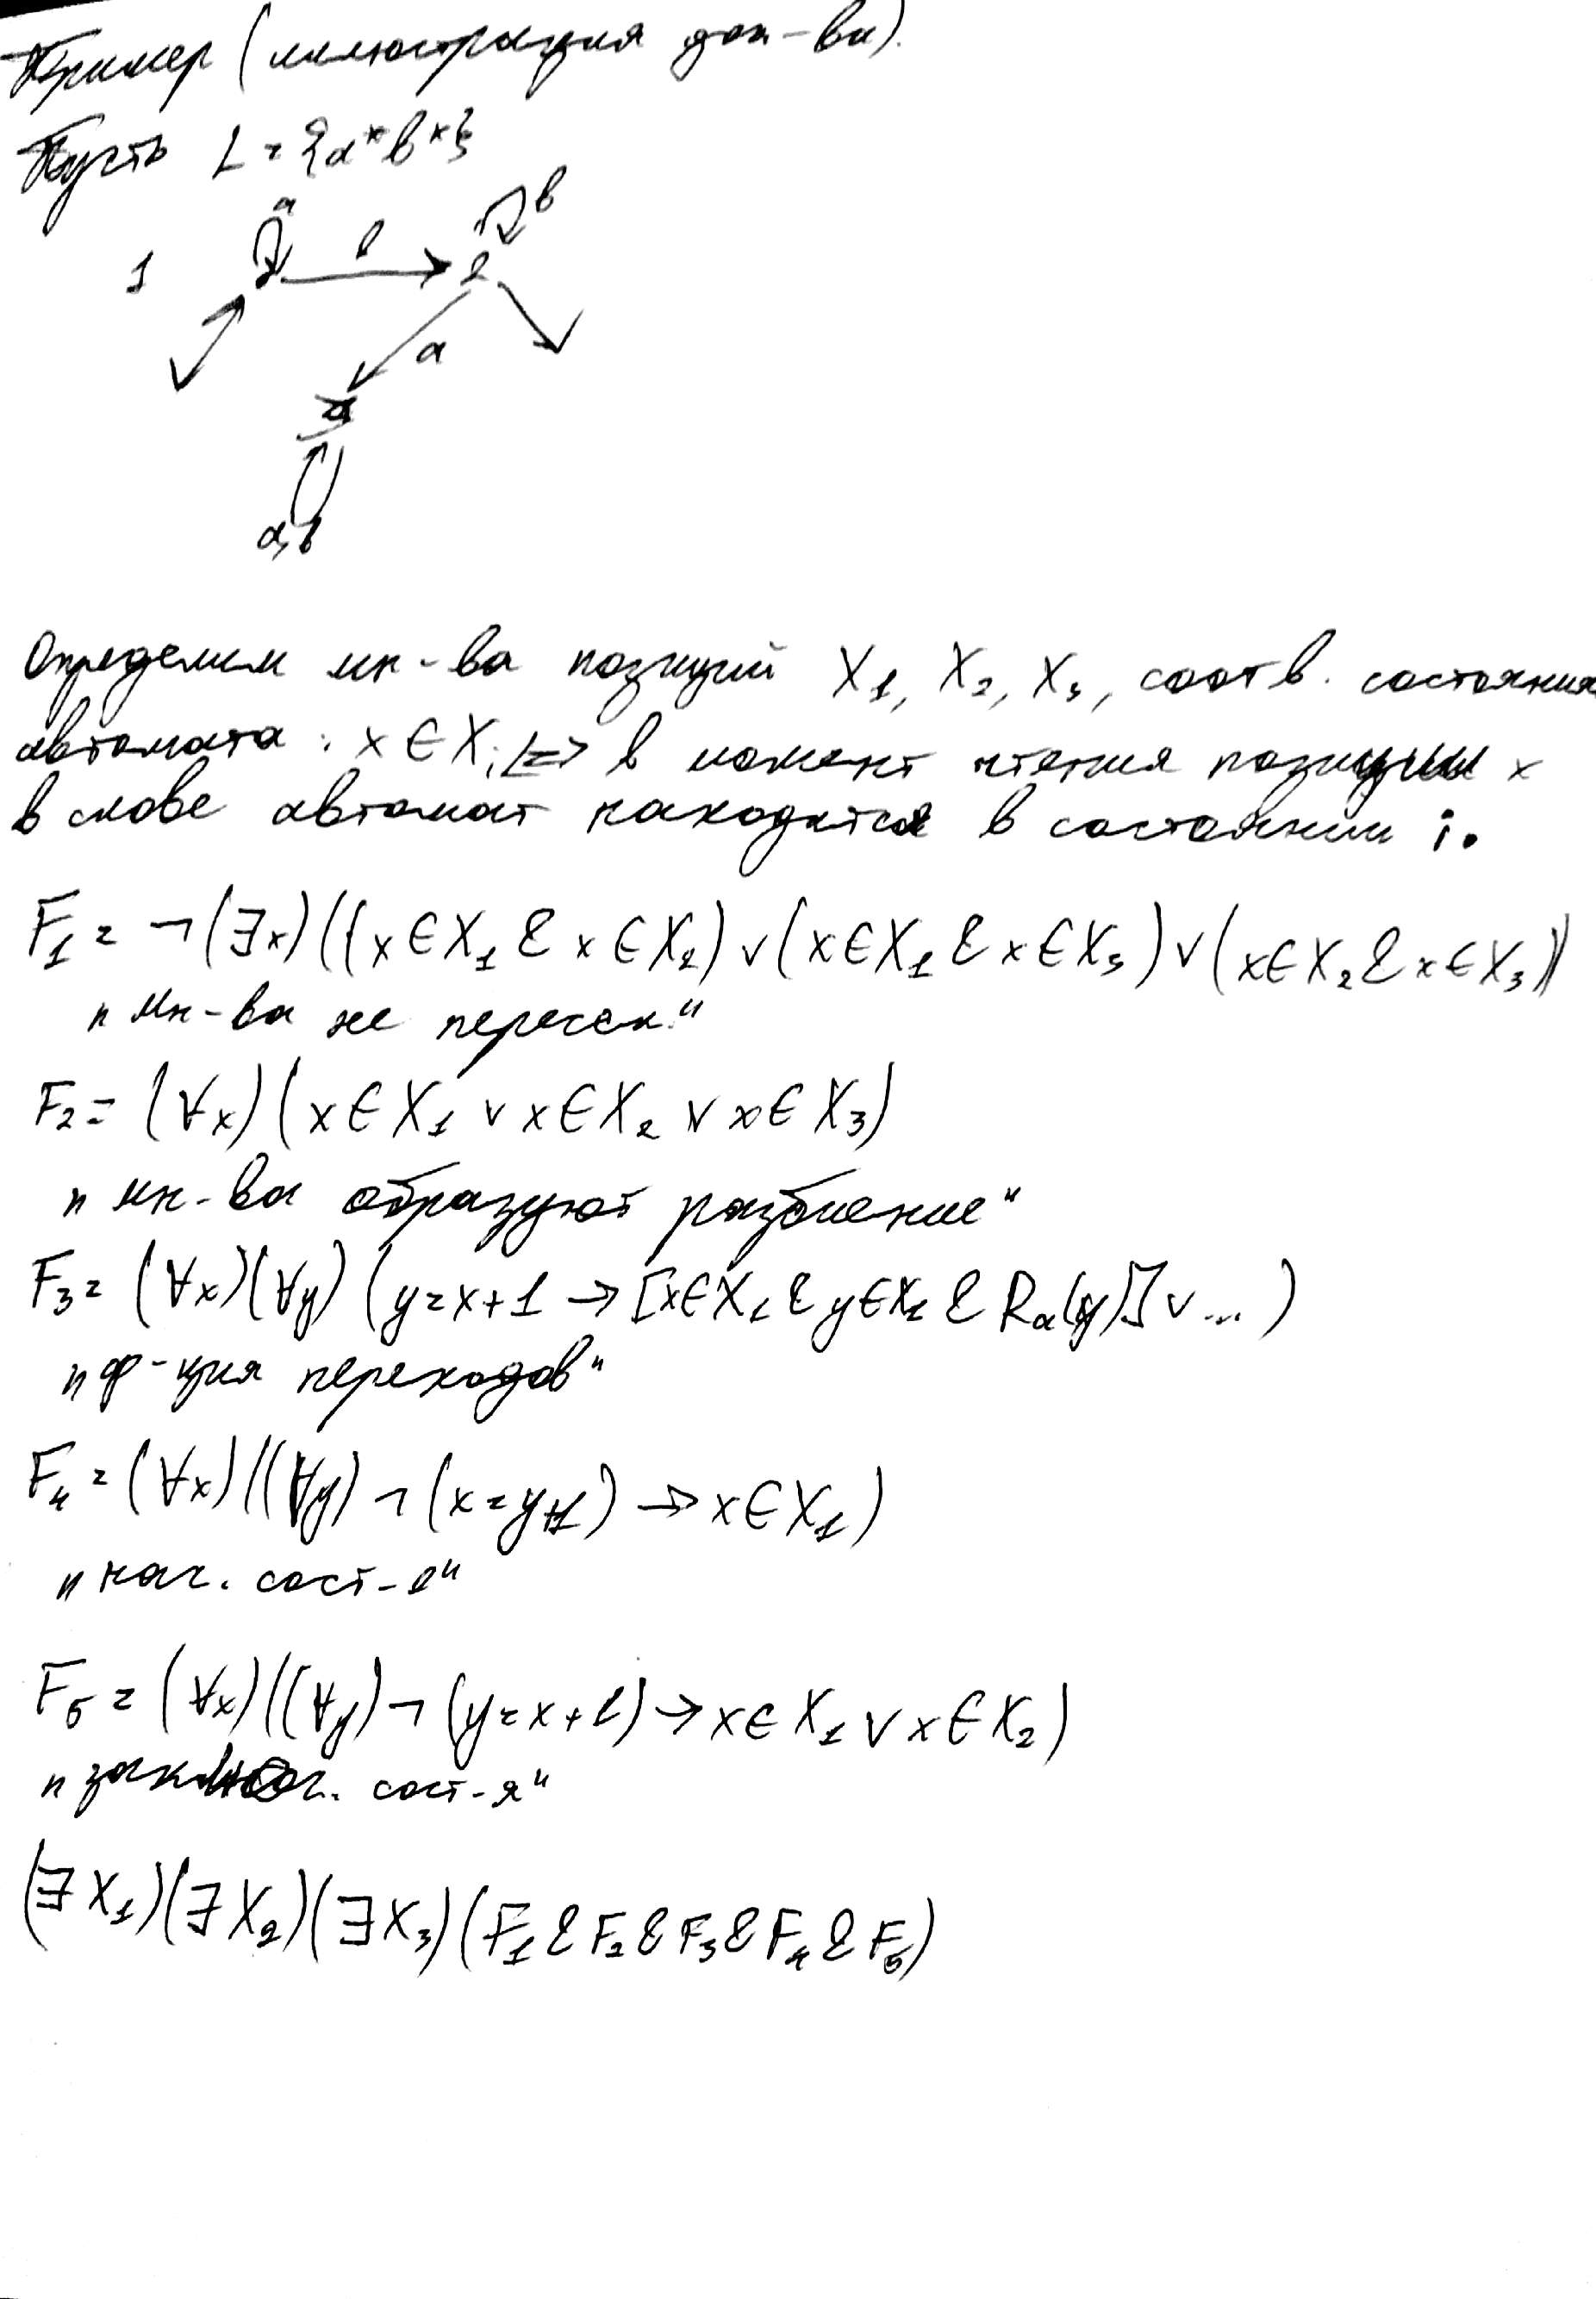 Пример (иллюстрация док-ва).
Пусть L = {a*b*}
a
b
b
1
2
a
a, b
Определим мн-ва позиций X₁, X₂, X₃, соотв. состояния
автомата: x ∈ Xᵢ ⇔ в момент чтения позиции x
в слове автомат находится в состоянии i.
F₁ = ¬(∃x)((x∈X₁ & x∈X₂) ∨ (x∈X₁ & x∈X₃) ∨ (x∈X₂ & x∈X₃))
„мн-ва не пересек.“
F₂ = (∀x)(x∈X₁ ∨ x∈X₂ ∨ x∈X₃)
„мн-ва образуют разбиение“
F₃ = (∀x)(∀y)(y=x+1 → [x∈X₁ & y∈X₁ & Rₐ(y)] ∨ ...)
„ф-ция переходов“
F₄ = (∀x)((∀y)¬(x=y+1) → x∈X₁)
„нач. сост-е“
F₅ = (∀x)((∀y)¬(y=x+1) → x∈X₁ ∨ x∈X₂)
сост-я“
(∃X₁)(∃X₂)(∃X₃)(F₁ & F₂ & F₃ & F₄ & F₅)